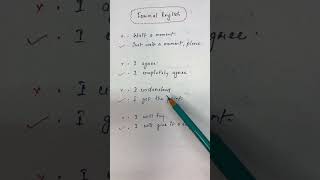 Formal English
x. Wait a moment.
✓. Just wait a moment, please.
x. I agree.
✓. I completely agree
x. I understand
✓. I get the point.
x. I will try
✓. I will give it a